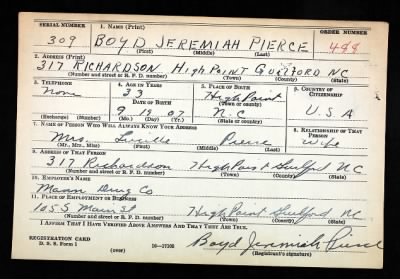 SERIAL NUMBER 1. NAME (Print) ORDER NUMBER
309 BOYD JEREMIAH PIERCE 488
(First) (Middle) (Last)
2. ADDRESS (Print)
317 RICHARDSON HIGH POINT GUILFORD NC
(Number and street or R. F. D. number) (Town) (County) (State)
3. TELEPHONE 4. AGE IN YEARS 5. PLACE OF BIRTH 6. COUNTRY OF CITIZENSHIP
None 33 High Point
DATE OF BIRTH (Town or county)
9 19 07 N.C. U.S.A
(Exchange) (Number) (Mo.) (Day) (Yr.) (State or country)
7. NAME OF PERSON WHO WILL ALWAYS KNOW YOUR ADDRESS 8. RELATIONSHIP OF THAT PERSON
Mrs. Lucille Pierce Wife
(Mr., Mrs., Miss) (First) (Middle) (Last)
9. ADDRESS OF THAT PERSON
317 Richardson High Point Guilford NC
(Number and street or R. F. D. number) (Town) (County) (State)
10. EMPLOYER'S NAME
Mann Drug Co
11. PLACE OF EMPLOYMENT OR BUSINESS
105 S Main St High Point Guilford NC
(Number and street or R. F. D. number) (Town) (County) (State)
I AFFIRM THAT I HAVE VERIFIED ABOVE ANSWERS AND THAT THEY ARE TRUE.
REGISTRATION CARD
D. S. S. Form 1 (over) 16—17105
Boyd Jeremiah Pierce
(Registrant's signature)